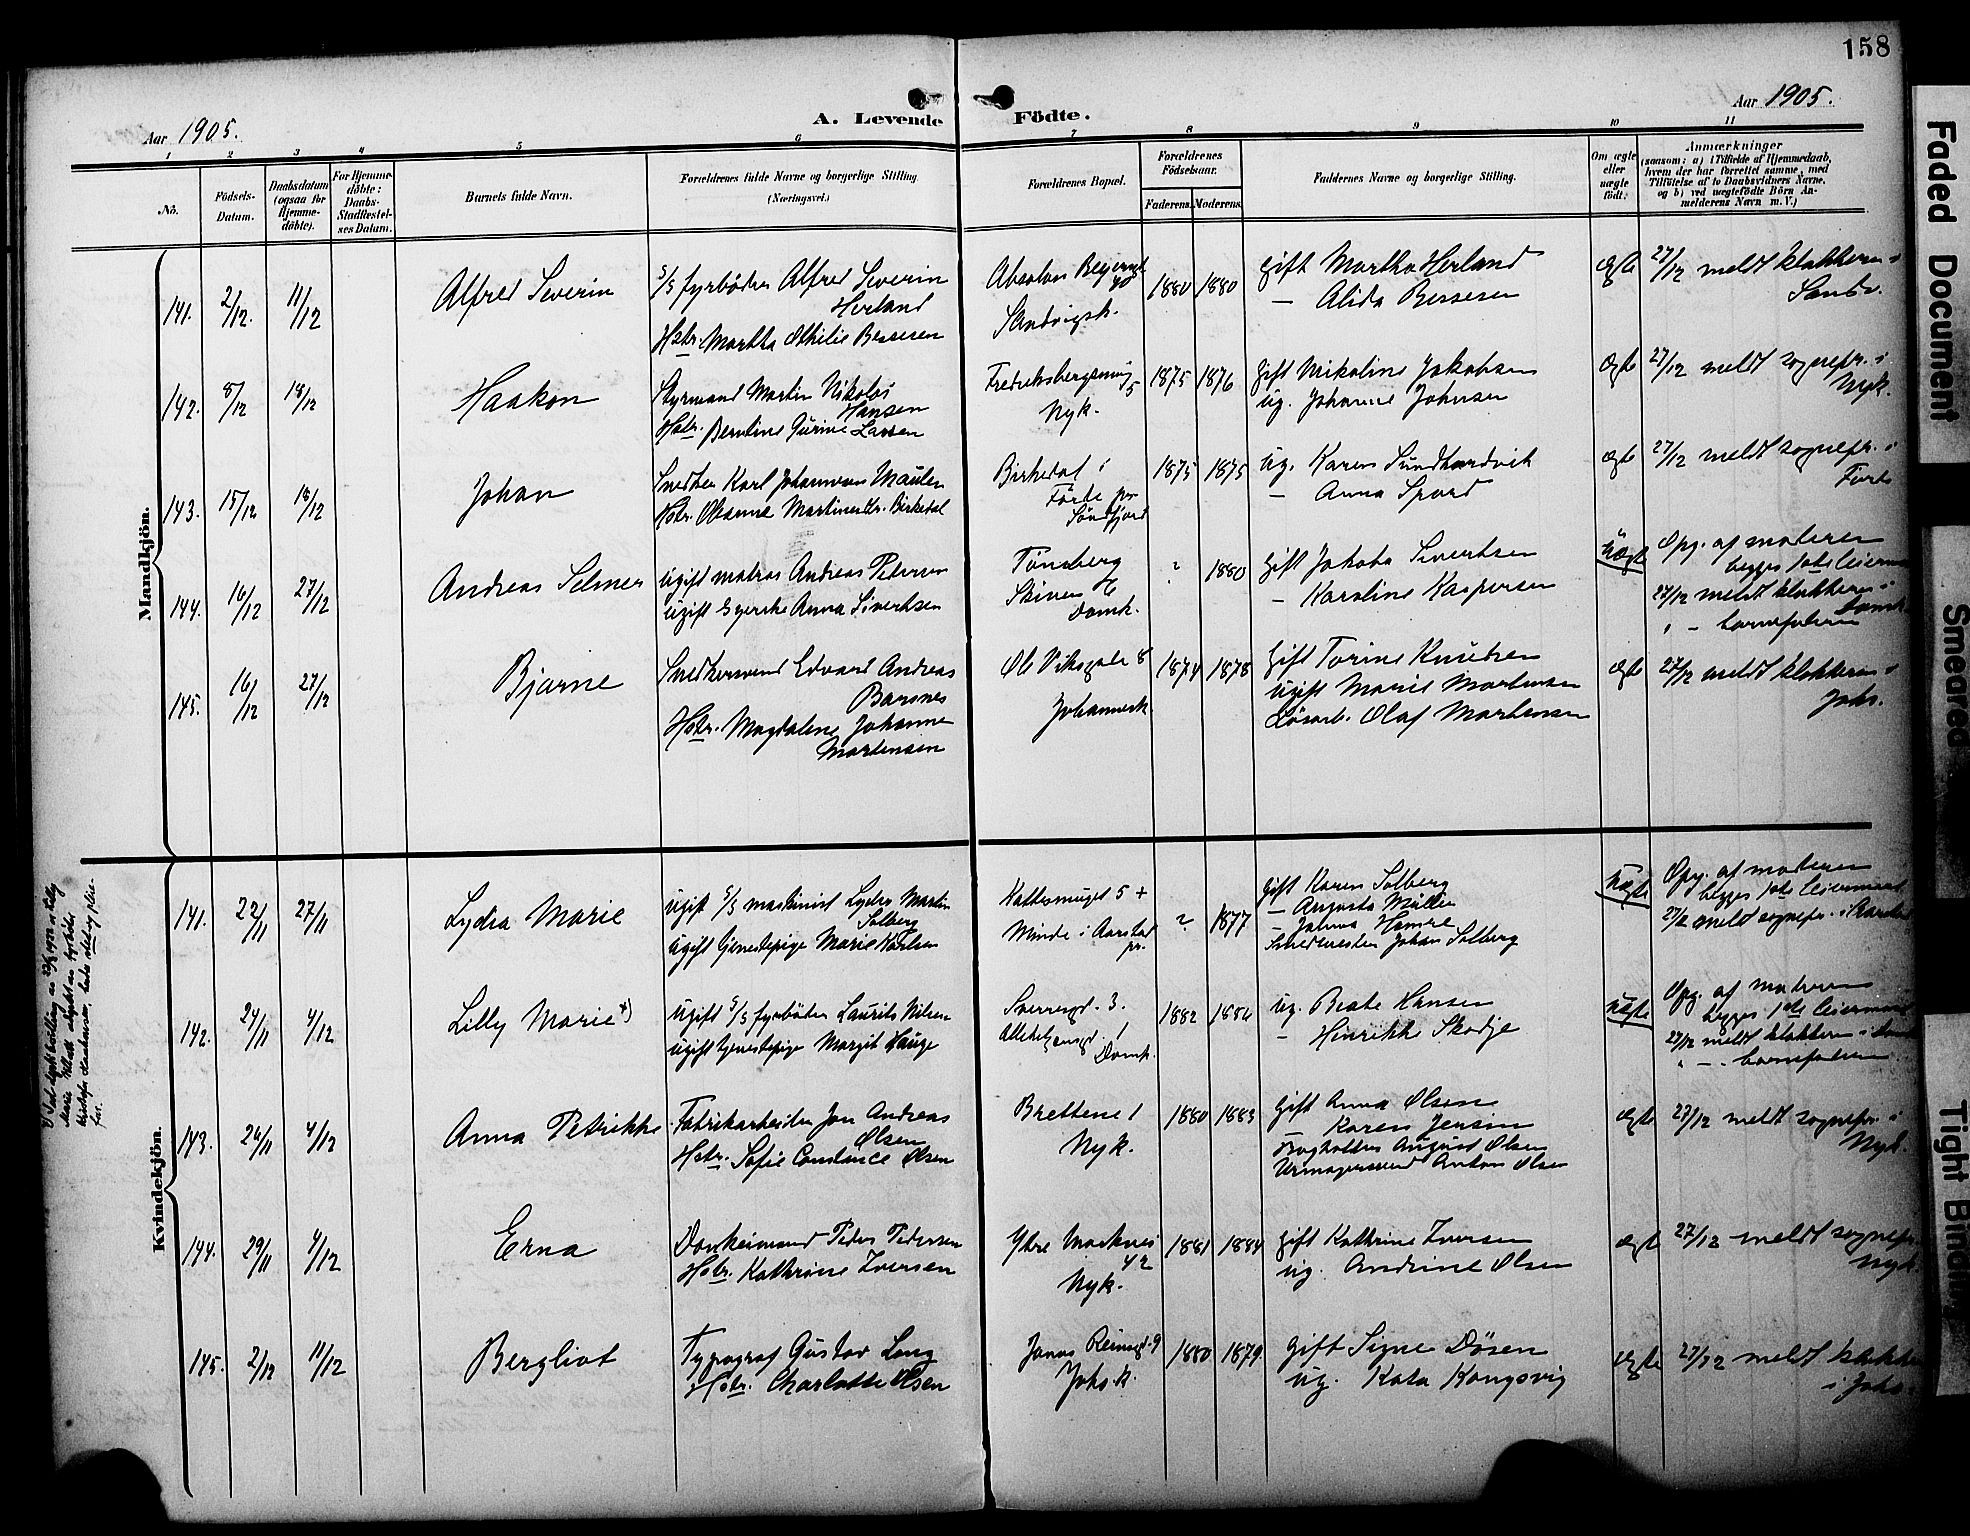 158
Aar 1905.
A. Levende Födte.
Aar 1905.
1 2 3 4 5 6 7 8 9 10 11
No.
Födsels-
Datum.
Daabsdatum
(ogsaa for
Hjemme-
döbte).
For Hjemme-
döbte:
Daabs-
Stadfæstel-
ses Datum.
Barnets fulde Navn.
Forældrenes fulde Navne og borgerlige Stilling.
(Næringsvei.)
Forældrenes Bopæl.
Forældrenes
Födselsaar.
Faderens. Moderens.
Faddernes Navne og borgerlige Stilling.
Om ægte
eller
uægte
födt.
Anmærkninger
(saasom: a) i Tilfælde af Hjemmedaab,
hvem der har forrettet samme, med
Tilföielse af to Daabsvidners Navne,
og b) ved uægtefödte Börn An-
melderens Navn m. V.)
Mandkjön.
141. 2/12. 11/12
Alfred Severin
S/S fyrböder Alfred Severin
Herland
Hstr. Martha Othilie Bessesen
Absalon Beyersgt
Sandvigsk.
1880 1880
gift Martha Herland
— Alida Bessesen
ægte
27/12 meldt klokkeren i
Sandv.
142. 8/12 18/12
Haakon
Styrmand Martin Nikolai
Hansen
Hstr. Berntine Gurine Larsen
5
Nyk.
1875 1876
gift Nikoline Jakobsen
ug. Johanne Johnsen
ægte
27/12 meldt sognepr. i
Nyk.
143. 15/12 18/12
Johan
Snedker Karl Johannesen Maulen
Hstr. Oleanne Martinesdtr. Birkedal
Birkedal i
Förde pr
Söndfjord
1875 1875
ug. Karen Sundhordvik
— Anna
ægte
27/12 meldt sognepr. i
Förde
144. 16/12 27/12
Andreas Selmer
ugift matros Andreas Petersen
ugift Syerske Anna Sivertsen
Tönsberg
Skiven
Domk.
? 1880
gift Jakoba Sivertsen
— Karoline Kaspersen
Uægte
Opg. af moderen
begges 1ste leierm
27/12 meldt klokkeren i
Domk.
" — barnefaderen
145. 16/12 27/12
Bjarne
Snedkersvend Edvard Andreas
Barsnes
Hstr. Magdalene Johanne
Martensen
Ole Viksgate 8
Johannesk
1874 1878
gift Torine Knudsen
ugift Marie Martensen
Lösarb. Olaf Martensen
ægte
27/12 meldt klokkeren i
Johs.
Kvindekjön.
141. 22/11 27/11
Lydia Marie
ugift S/S maskinist Lyder Martin
Solberg
ugift tjenestepige Marie Karlsen
5 +
Minde i Aarstad
pr.
? 1877
gift Karen Solberg
— Augusta Müller
— Hamre
Smedemester Johan Solberg
Uægte
Opg. af moderen
begges 1ste leiermaal
27/12 meldt sognepr. i Aarstad
142. 24/11 4/12
Lilly Marie x)
ugift S/S fyrböder Laurits Nilsen
ugift tjenestepige Margit Hauge
Sverresgt. 3.
Allehelgensgd. 1
Domk.
1882 1884
ug. Beate Hansen
— Henrikke Skodje
Uægte
Opg. af moderen
begges 1ste leiermaal
27/12 meldt klokkeren i Domk
" — barnefaderen
143. 26/11 4/12
Anna Petrikke
Fabrikarbeider Jon Andreas
Olsen
Hstr. Sofie Constance Olsen
Brettene 1
Nyk.
1880 1883
gift Anna Olsen
— Karen Jensen
Bogholder August Olsen
Urmagersvend Anton Olsen
ægte
27/12 meldt sognepr. i
Nyk.
144. 29/11 4/12
Erna
Donkeimand Peder Pedersen
Hstr. Kathrine Iversen
Ytre Markvei
42
Nyk.
1881 1884
gift Kathrine Iversen
ug. Andrine Olsen
ægte
27/12 meldt sognepr.
Nyk.
145. 2/12 11/12
Bergliot
Typograf Gustav Long
Hstr. Charlotte Olsen
Jonas Reinsgd. 9
Johs.k.
1880 1879
gift Signe Dösen
ug. Kata Kongsvig
ægte
27/12 meldt klokker
i Johs.
Faded Document
Smeared
Tight Binding